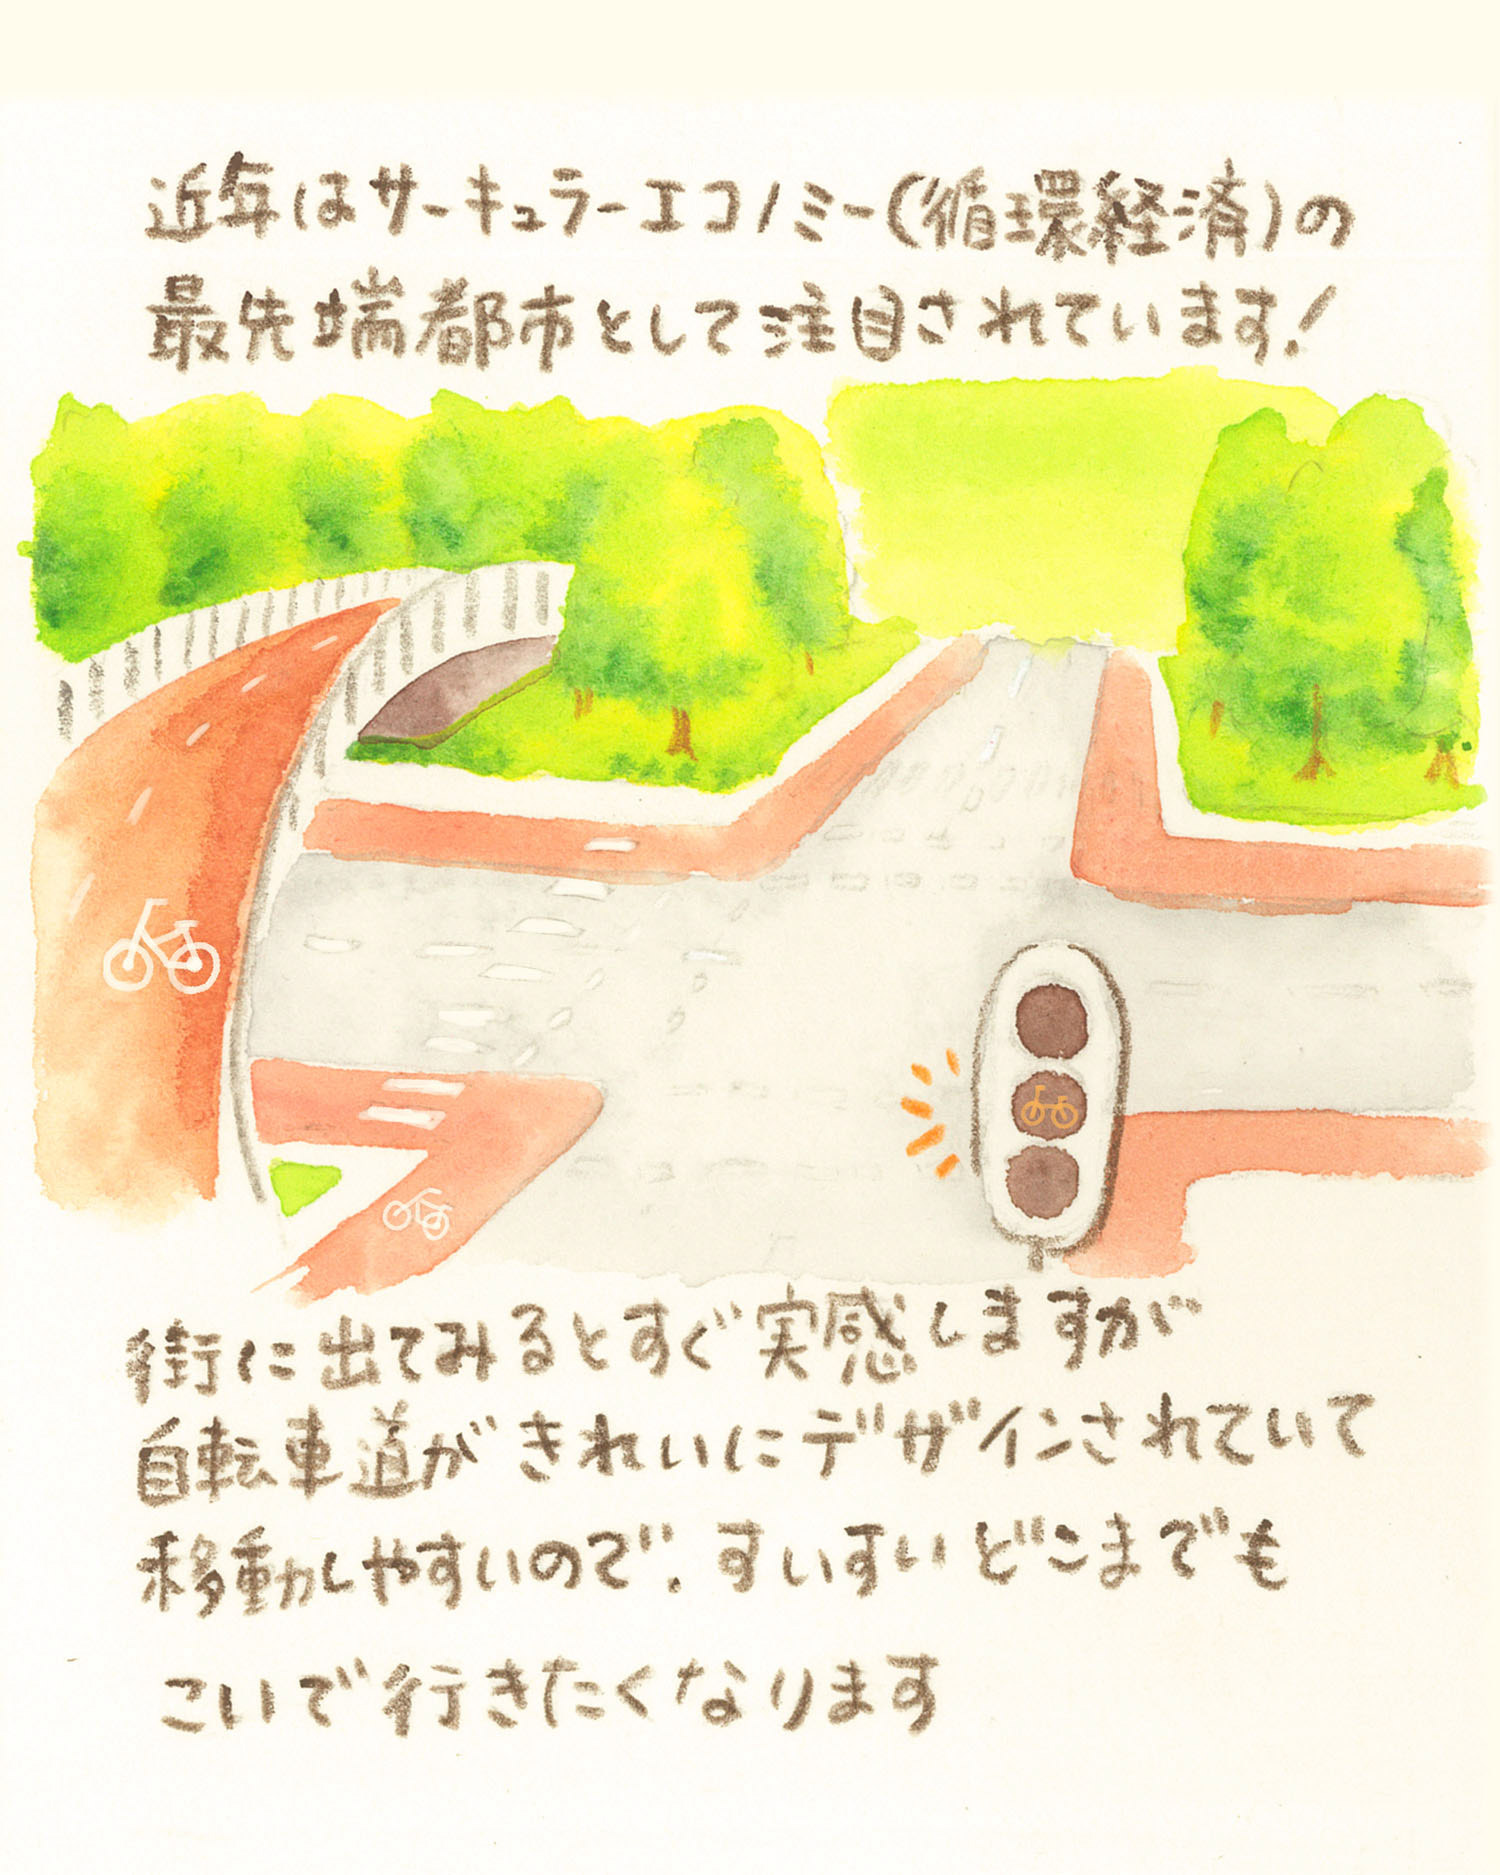 近年はサーキュラーエコノミー(循環経済)の
最先端都市として注目されています!
街に出てみるとすぐ実感しますが
自転車道がきれいにデザインされていて
移動しやすいので、すいすいどこまでも
こいで行きたくなります